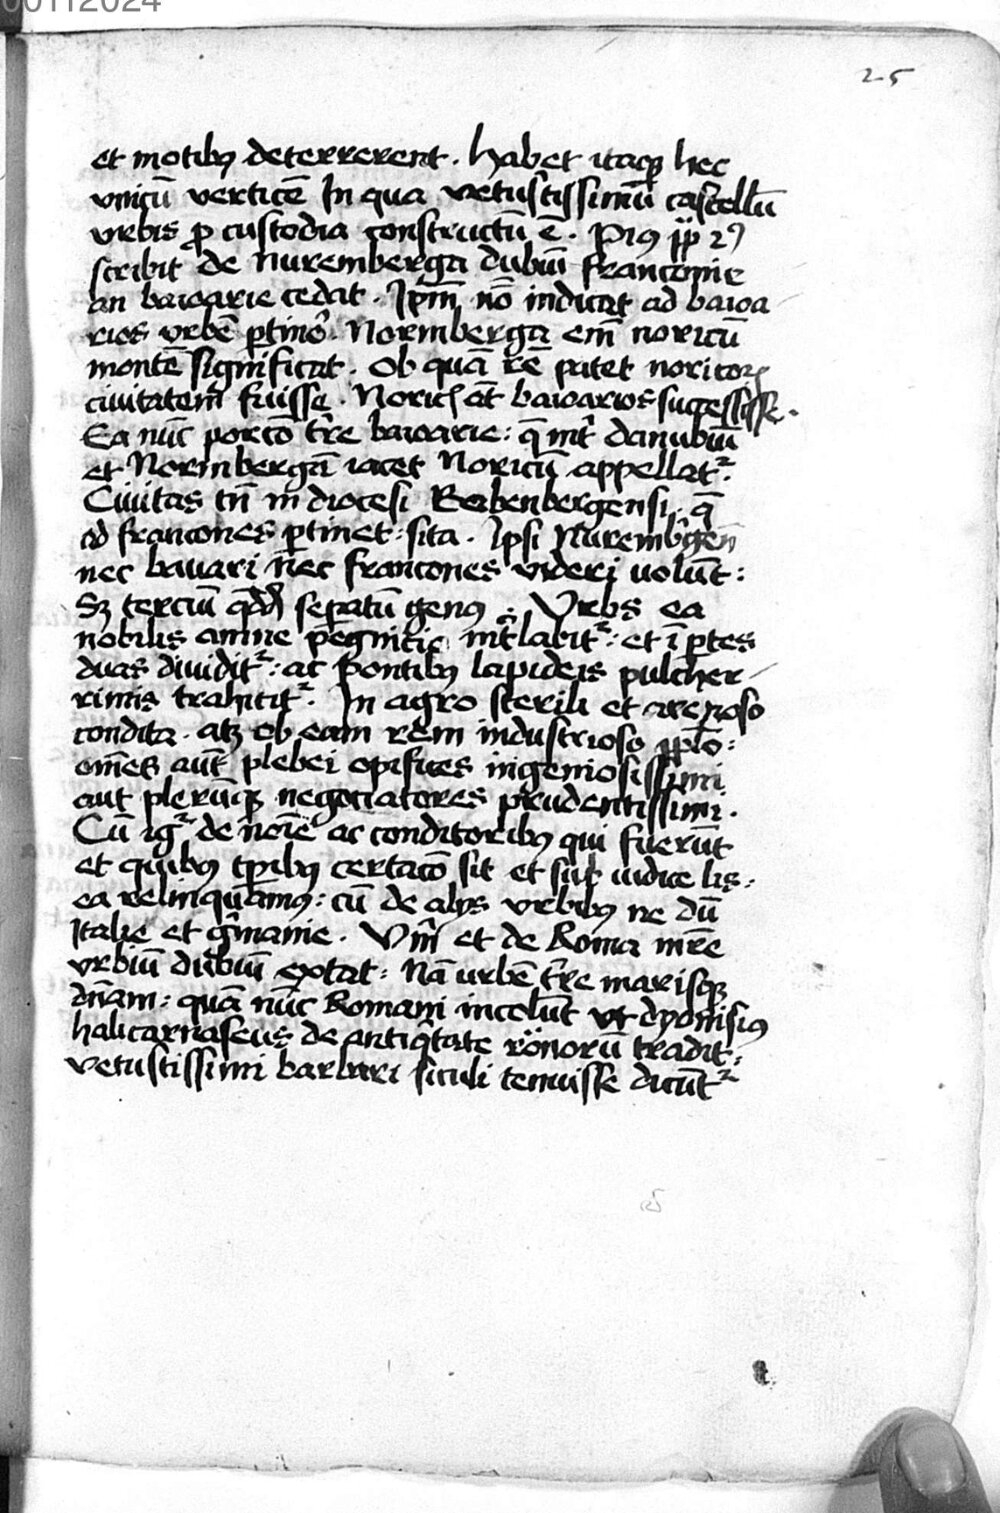 00112024
25
et motibꝰ deterrerent. Habet itaqꝫ hec
vnicū verticē In qua vetustissimū castellū
vrbis ꝓ custodia constructū ē. Piꝰ pp 2ꝰ
scribit de Nuremberga dubiū franconie
an baioarie cedat. Ipm̄ nō indicat ad baioa
rios vrbē ꝑtinē. Normberga em̄ noricū
montē significat. Ob quā rē patet noricoꝝ
ciuitatem fuisse. Noricꝭ aūt baioarios successisse.
Ea nūc porcō tr̄e baioarie: q̄ int̄ danubiū
et Normbergā iacet Noricū appellat᷑.
Ciuitas tn̄ in diocesi Babenbergensi. q̄
ad francones ꝑtinet: sita. Ipsi Nurembgen̄
nec bauari nec francones videri volūt:
Sꝫ terciū qdd̄ sepatū genꝰ. Vrbs ea
nobilis amne pegnicie int̄labit᷑: et ī ꝑtes
duas diuidit᷑: ac pontibꝰ lapideis pulcher
rimis transit᷑. In agro sterili et arenoso
condita. atqꝫ ob eam rem industrioso pplo:
om̄es aūt plebei opifices ingeniosissimi
aut plerūqꝫ negociatores prudentissimi.
Cū ig᷑ de noīe ac conditoribꝰ qui fuerūt
et quibꝰ tpibꝰ certacō sit et sub iudice lis:
ea relinquamꝰ: cū de alijs vrbibꝰ ne dū
Italie et ḡmanie. Vm̄ et de Roma mr̄e
vrbiū dubiū extat: Nā vrbē tr̄e marisqꝫ
dn̄am: quā nūc Romani incolūt vt dyonisiꝰ
halicarnaseus de antiqͥtate rōnorū tradit:
vetustissimi barbari siculi tenuisse dicūt᷑